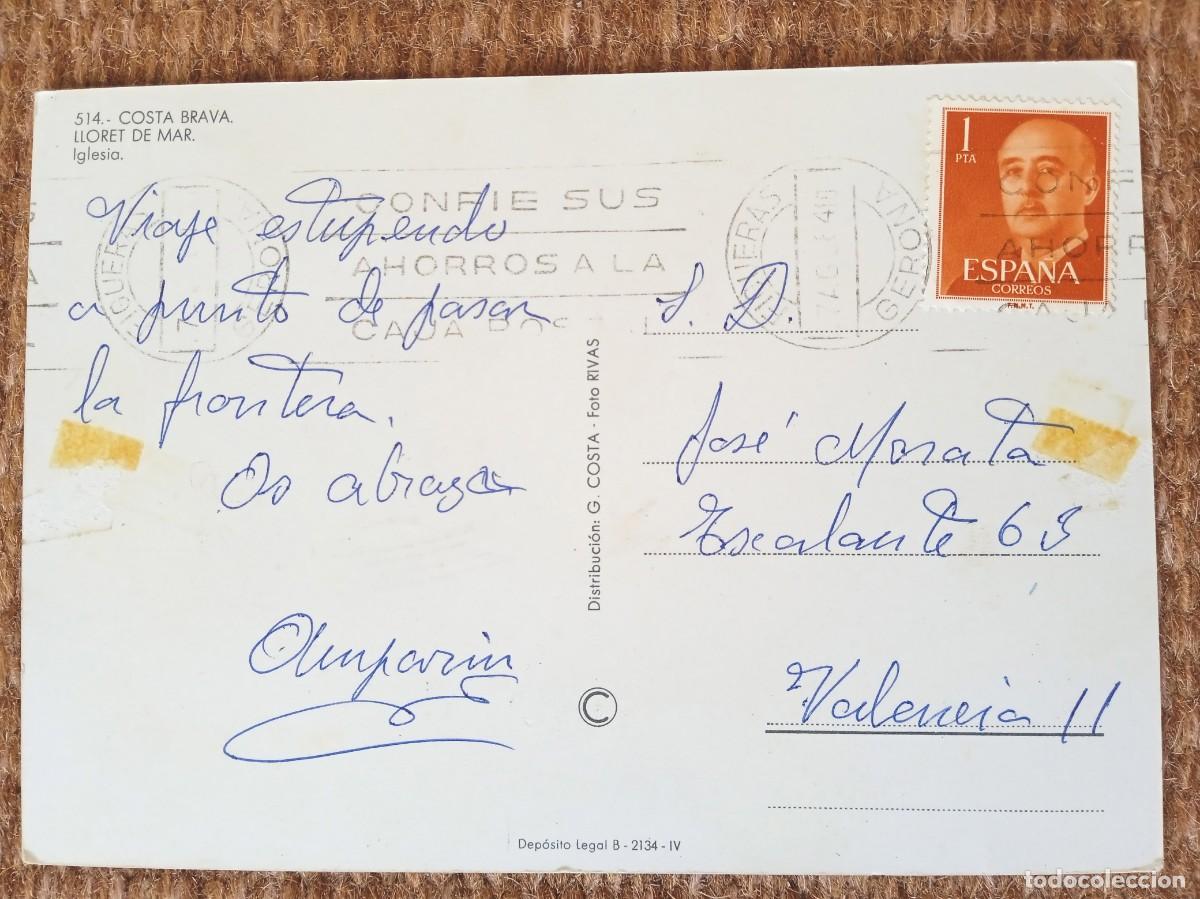 514.- COSTA BRAVA.
LLORET DE MAR.
Iglesia.
Viaje estupendo
a punto de pasar
la frontera.
Os abraza
Amparin
CONFIE SUS
AHORROS A LA
CAJA POSTAL
FIGUERAS
GERONA
FIGUERAS
GERONA
1
PTA
ESPAÑA
CORREOS
F.N.M.T.
CONF
AHORR
CAJA P
S. D.
José Morata
Escalante 63
Valencia 11
Distribución: G. COSTA - Foto RIVAS
C
Depósito Legal B - 2134 - IV
todocoleccion